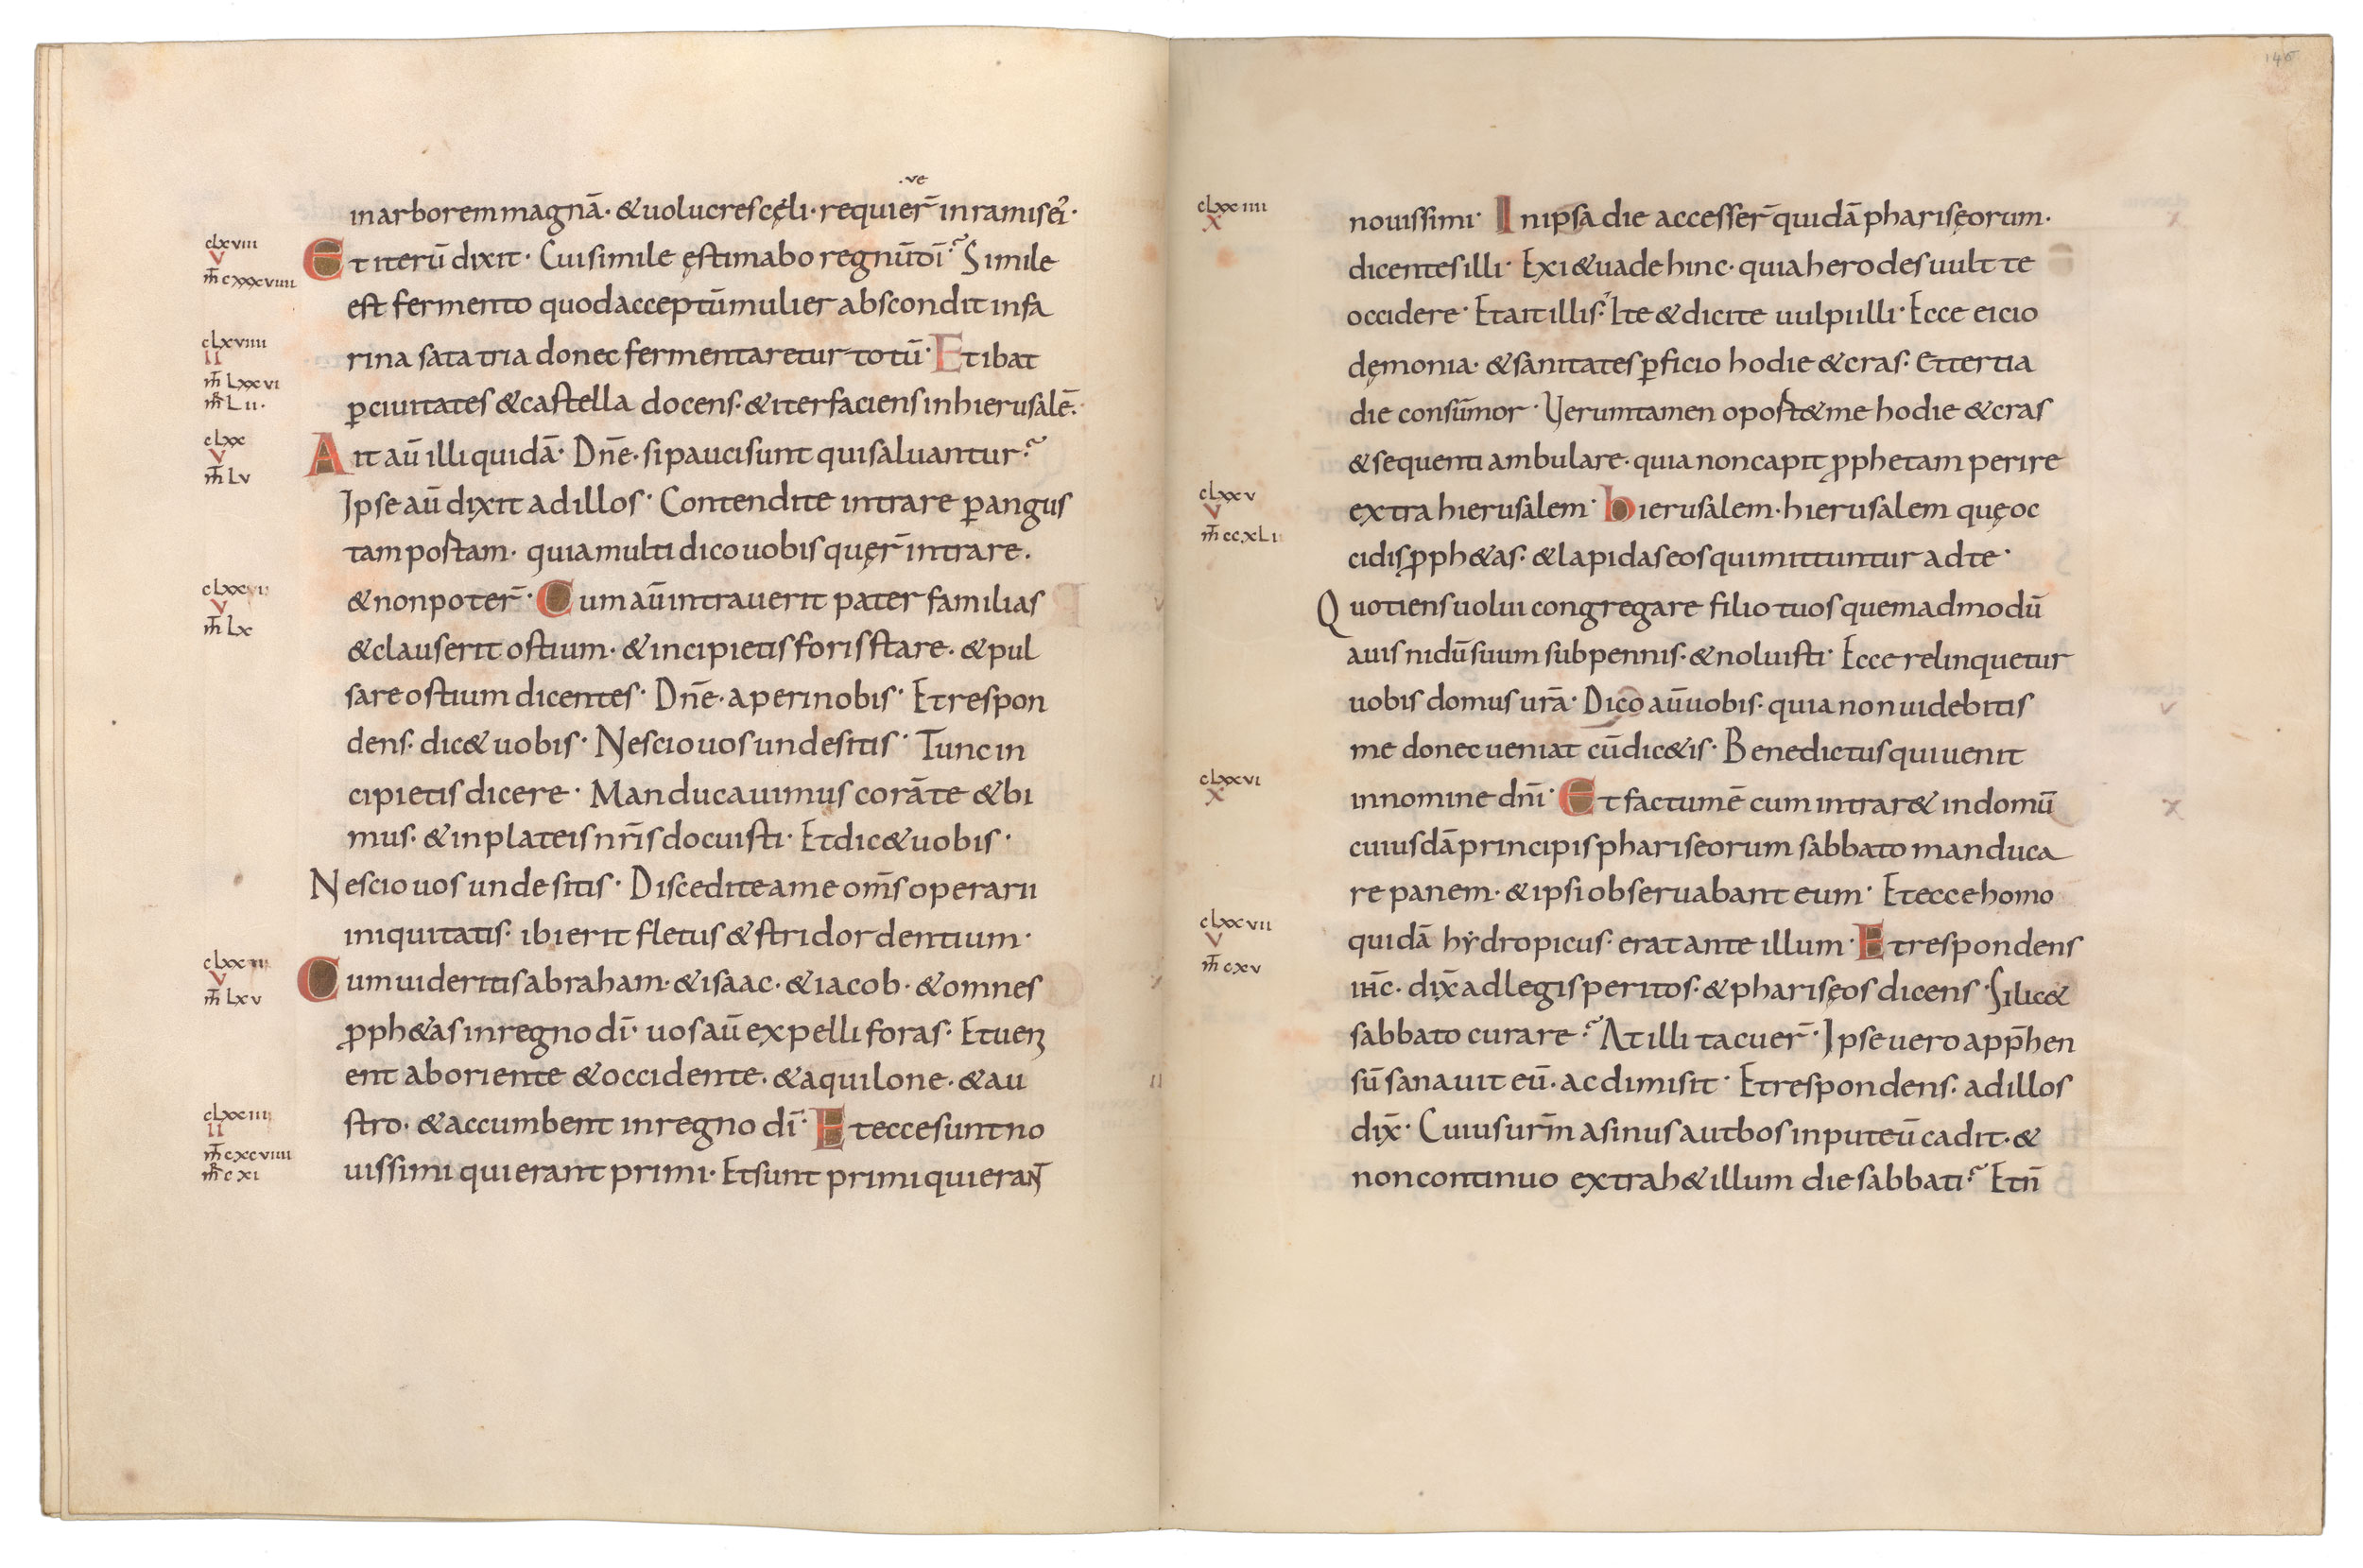 .ve
in arborem magnā· & uolucres cęli· requier̄ in ramis ei'·
clxviii
v
m̄ cxxxviiii
Et iterū dixit· Cui simile ęstimabo regnū dī? Simile
est fermento quod acceptū mulier abscondit in fa
clxviiii
ii
m̄ lxxvi
mr̄ Lii·
rina sata tria donec fermentaretur totū· Et ibat
ꝑ ciuitates & castella docens· & iter faciens in hierusalē·
clxx
v
m̄ Lv
Ait aū illi quidā· Dn̄e· si pauci sunt qui saluantur?
Ipse aū dixit ad illos· Contendite intrare ꝑ angus
tam postam· quia multi dico uobis quęr̄ intrare·
clxxvi
v
m̄ Lx
& non poter̄· Cum aū intrauerit pater familias
& clauserit ostium· & incipietis foris stare· & pul
sare ostium dicentes· Dn̄e· aperi nobis· Et respon
dens· dic& uobis· Nescio uos unde sitis· Tunc in
cipietis dicere· Manducauimus corā te & bi
mus· & in plateis nr̄is docuisti· Et dic& uobis·
Nescio uos unde sitis· Discedite a me om̄s operarii
iniquitatis· ibi erit fletus & stridor dentium·
v
m̄ Lxv
Cum uideritis abraham· & isaac· & iacob· & omnes
ꝓph&as in regno dī· uos aū expelli foras· Et ueni
ent ab oriente & occidente· & aquilone· & au
clxxiii
ii
m̄ cxcviiii
mr̄ cxi
stro· & accumbent in regno dī· Et ecce sunt no
uissimi qui erant primi· Et sunt primi qui erant
146
clxxiiii
x
nouissimi· In ipsa die accesser̄ quidā phariseorum·
dicentes illi· Exi & uade hinc· quia herodes uult te
occidere· Et ait illis· Ite & dicite uulpi illi· Ecce eicio
dęmonia· & sanitates ꝑficio hodie & cras· Et tertia
die consūmor· Uerumtamen opost& me hodie & cras
& sequenti ambulare· quia non capit ꝓphetam perire
clxxv
v
m̄ ccxLi
extra hierusalem· hierusalem· hierusalem quę oc
cidis ꝓph&as· & lapidas eos qui mittuntur ad te·
Quotiens uolui congregare filio tuos quemadmodū
auis nidū suum sub pennis· & noluisti· Ecce relinquetur
uobis domus ur̄a· Dico aū uobis· quia non uidebitis
me donec ueniat cū dic&is· Benedictus qui uenit
clxxvi
x
in nomine dn̄i· Et factum ē cum intrar& in domū
cuiusdā principis phariseorum sabbato manduca
re panem· & ipsi obseruabant eum· Et ecce homo
clxxvii
v
m̄ cxv
quidā hẏdropicus· erat ante illum· Et respondens
ih̄c· dix̄ ad legisperitos· & phariseos dicens· Si lic&
sabbato curare? At illi tacuer̄· Ipse uero app̄hen
sū sanauit eū· ac dimisit· Et respondens· ad illos
dix̄· Cuius ur̄m asinus aut bos in puteū cadit· &
non continuo extrah& illum die sabbati? Et n̄